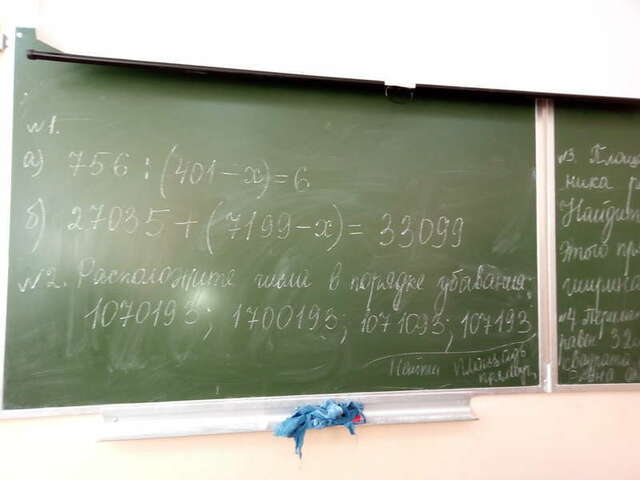 №1.
а) 756 : (401 – x) = 6
б) 27035 + (7199 – x) = 33099
№2. Расположите числа в порядке убывания:
1070193; 1700193; 1071093; 107193
Найти площадь
прямоуг.
№3. Площа
ника
Найдите
этого пр
ширина
№4. Периме
равен 32
квадрата